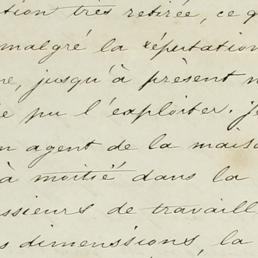 tion très retirée, ce q
malgré la réputation
ne, jusqu'à présent n
pu l'exploiter. Je
n agent de la maiso
à moitié dans la
ssieurs de travaill
s dimenssions, la